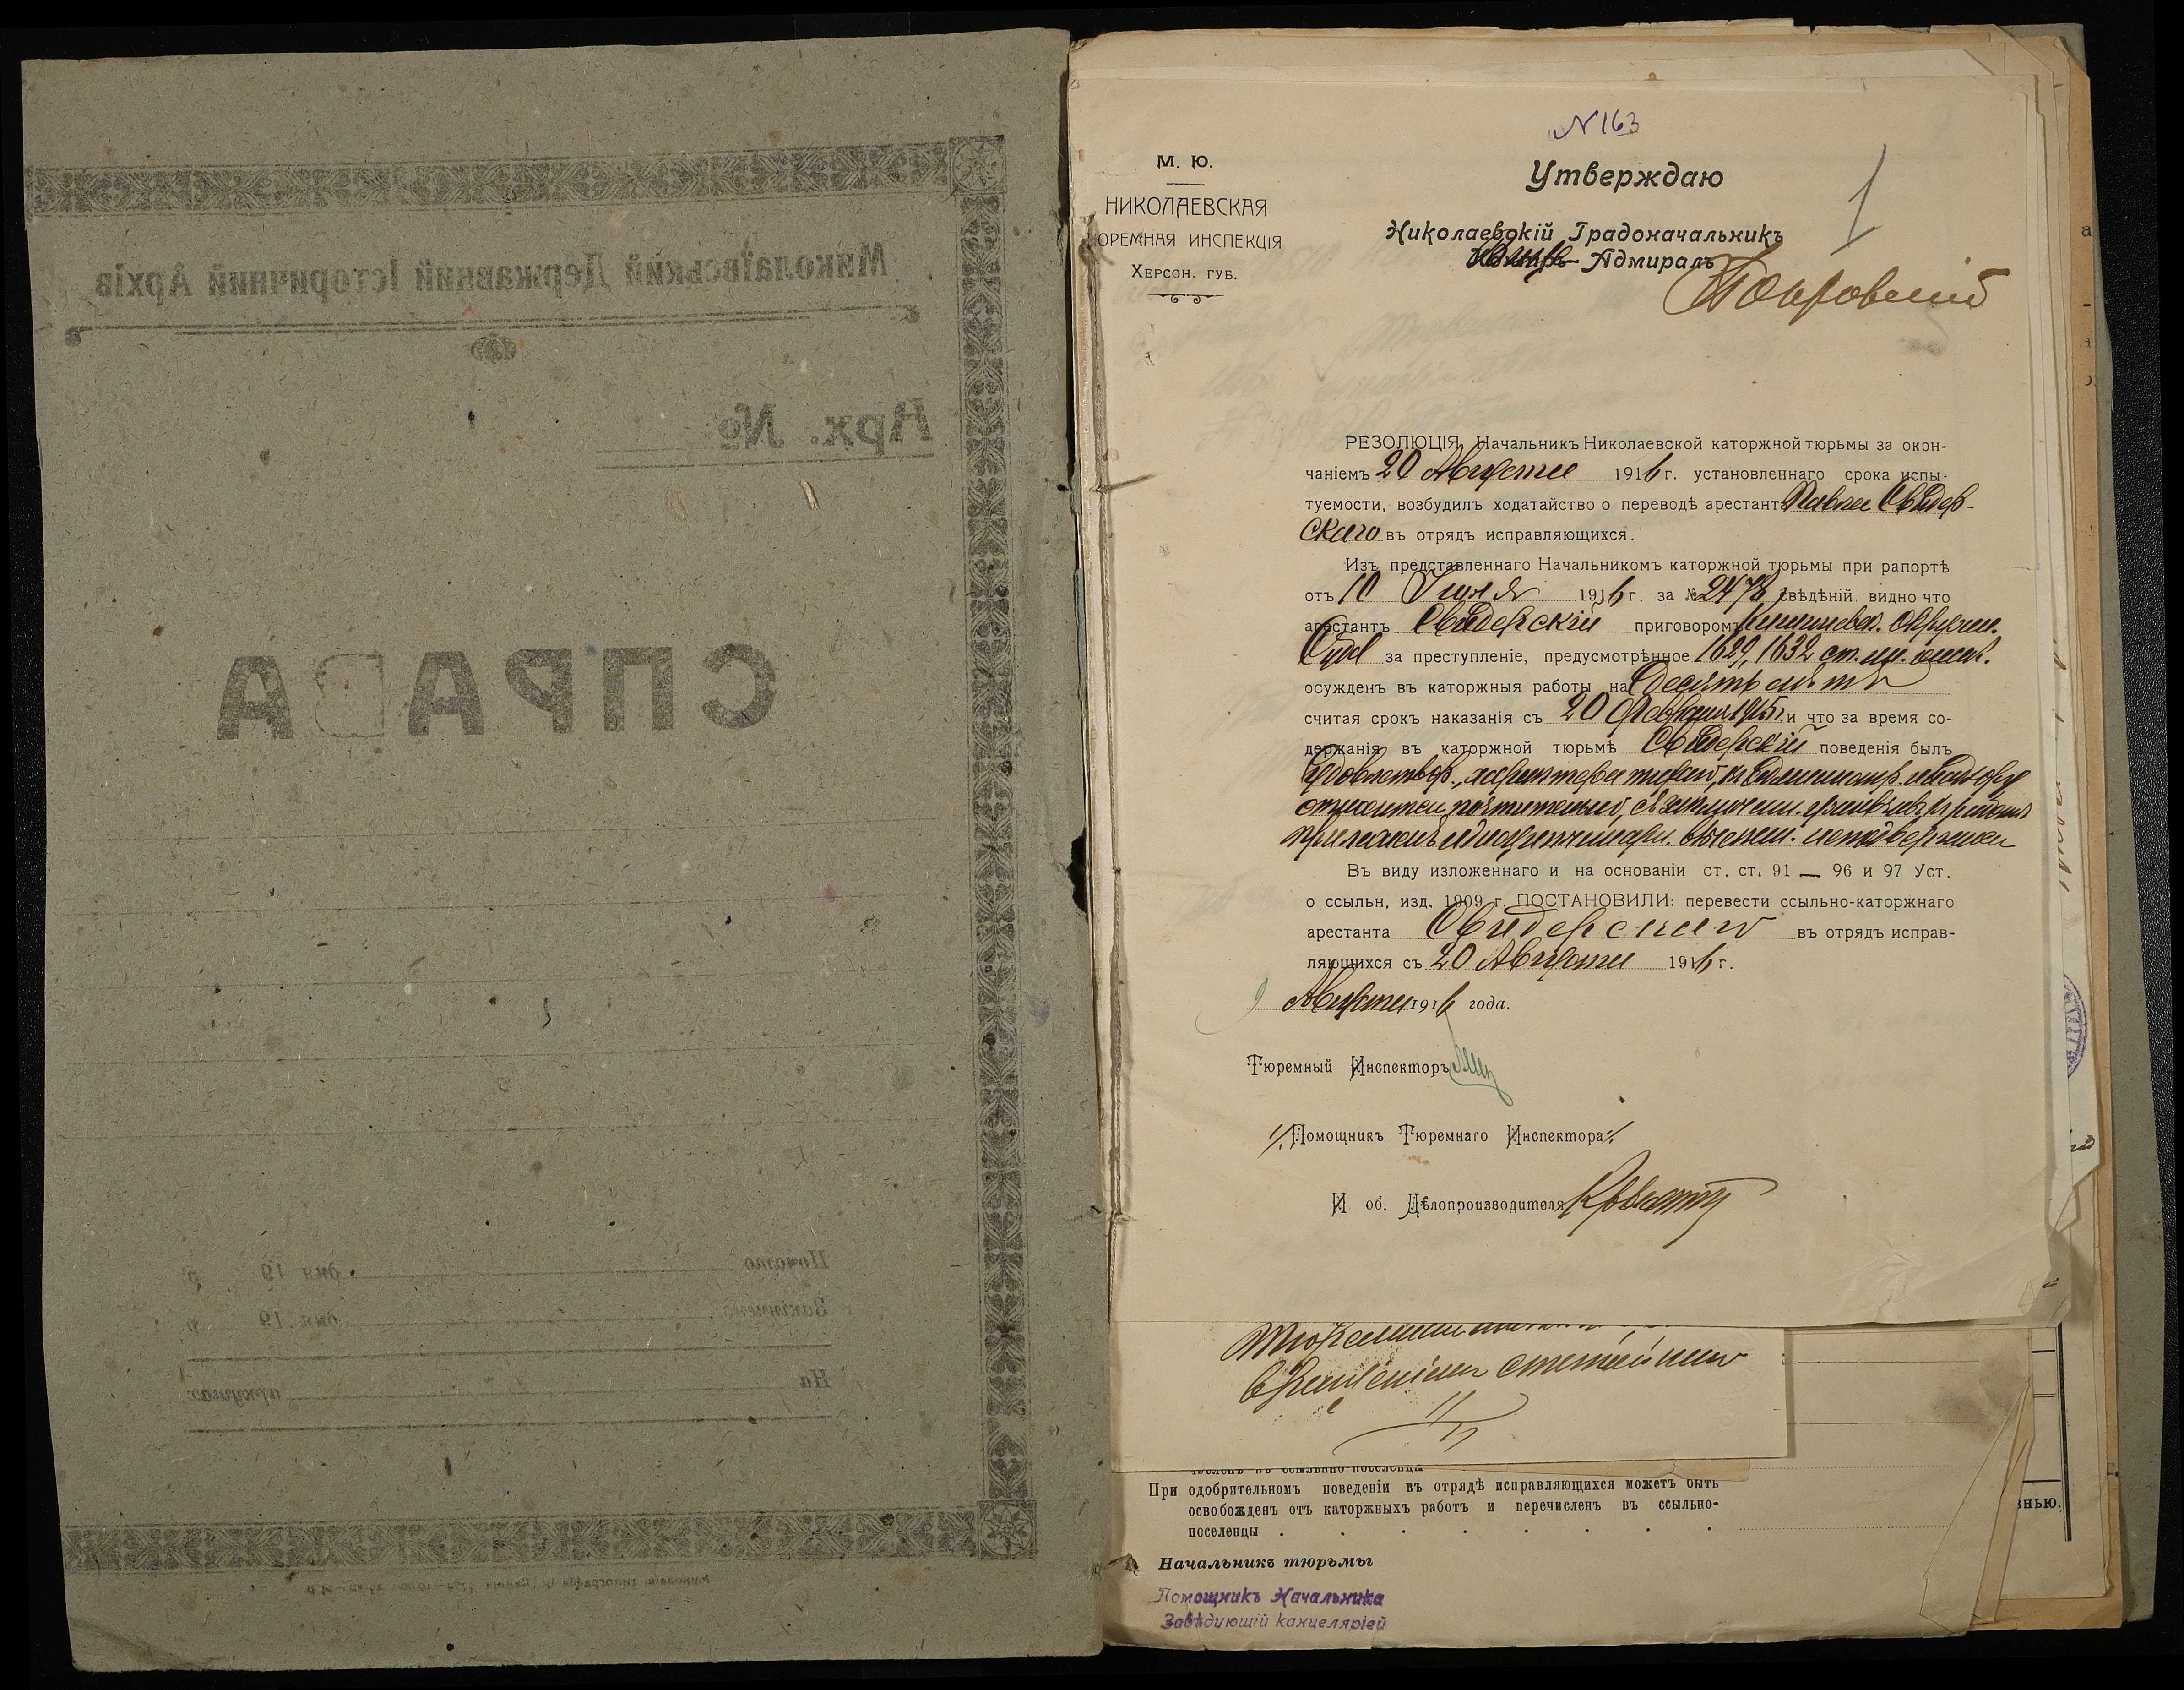 Миколаївський Державний Історичний Архів
Арх. №
СПРАВА
Почато дня 19 р
Закінчено дня 19 р
На аркушах
N 163
М. Ю.
НИКОЛАЕВСКАЯ
ОРЕМНАЯ ИНСПЕКЦІЯ
ХЕРСОН. ГУБ.
Утверждаю
1
Николаевскій Градоначальникъ
Адмиралъ
Покровскій
РЕЗОЛЮЦІЯ Начальникъ Николаевской каторжной тюрьмы за окон-
чаніемъ 20 Августа 1916 г. установленнаго срока испы-
туемости, возбудилъ ходатайство о переводѣ арестанта Павла Свидер-
скаго въ отрядъ исправляющихся.
Изъ представленнаго Начальникомъ каторжной тюрьмы при рапортѣ
отъ 10 Іюля 1916 г. за № 2478 свѣдѣній видно что
арестантъ Свидерскій приговоромъ Кишиневск. Окружн.
Суда за преступленіе, предусмотрѣнное 1629, 1632 ст. ул. о наказ.
осужденъ въ каторжныя работы на десять лѣтъ
считая срокъ наказанія съ 20 Февраля 1915 г. и что за время со-
держанія въ каторжной тюрьмѣ Свидерскій поведенія былъ
удовлетвор., характера тихаго, къ администр. и надзору
относится почтительно, съ заключен. къ работѣ
прилеженъ и дисциплинарн. взыскан. не подвергался
Въ виду изложеннаго и на основаніи ст. ст. 91 — 96 и 97 Уст.
о ссыльн, изд. 1909 г. ПОСТАНОВИЛИ: перевести ссыльно-каторжнаго
арестанта Свидерскаго въ отрядъ исправ-
ляющихся съ 20 Августа 1916 г.
9 Августа 1916 года.
Тюремный Инспекторъ
Помощникъ Тюремнаго Инспектора
И об. Дѣлопроизводителя
статейнаго
При одобрительномъ поведеніи въ отрядѣ исправляющихся можетъ быть
освобожденъ отъ каторжныхъ работъ и перечисленъ въ ссыльно-
поселенцы
Начальникъ тюрьмы
Помощникъ Начальника
Завѣдующій канцеляріей